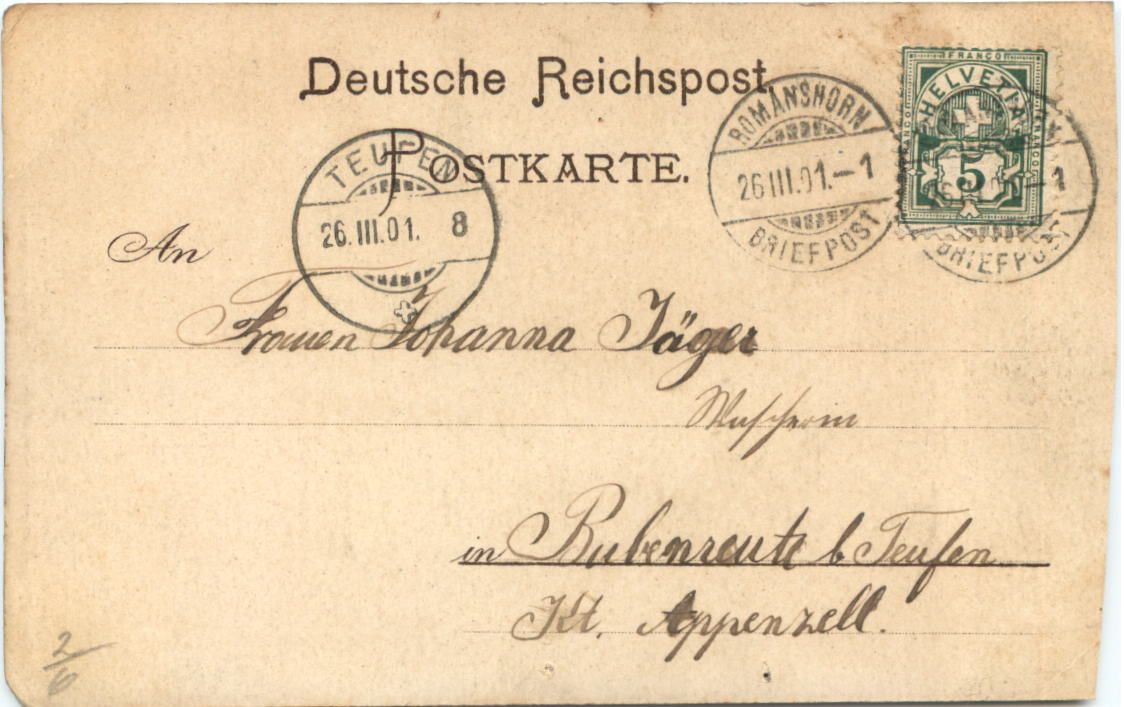 Deutsche Reichspost
POSTKARTE.
ROMANSHORN
26.III.01.–1
BRIEFPOST
FRANCO
HELVETIA
FRANCO
FRANCO
5
–1
BRIEFPOST
TEUFEN
26.III.01. 8
An
Frauen Johanna Jäger
Wascherin
in Bubenreute b Teufen
Kt. Appenzell.
2/6